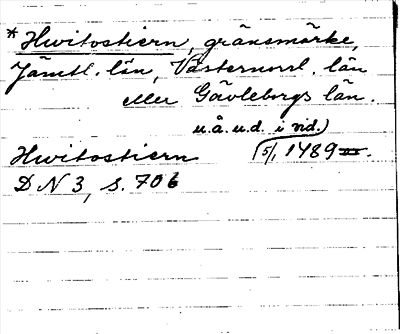 * Hwitostiern, gränsmärke,
Jämtl. län, Västernorrl. län
eller Gävleborgs län.
u.å. u.d. i vid.)
Hwitostiern (5/1 1489
D N 3, s. 706